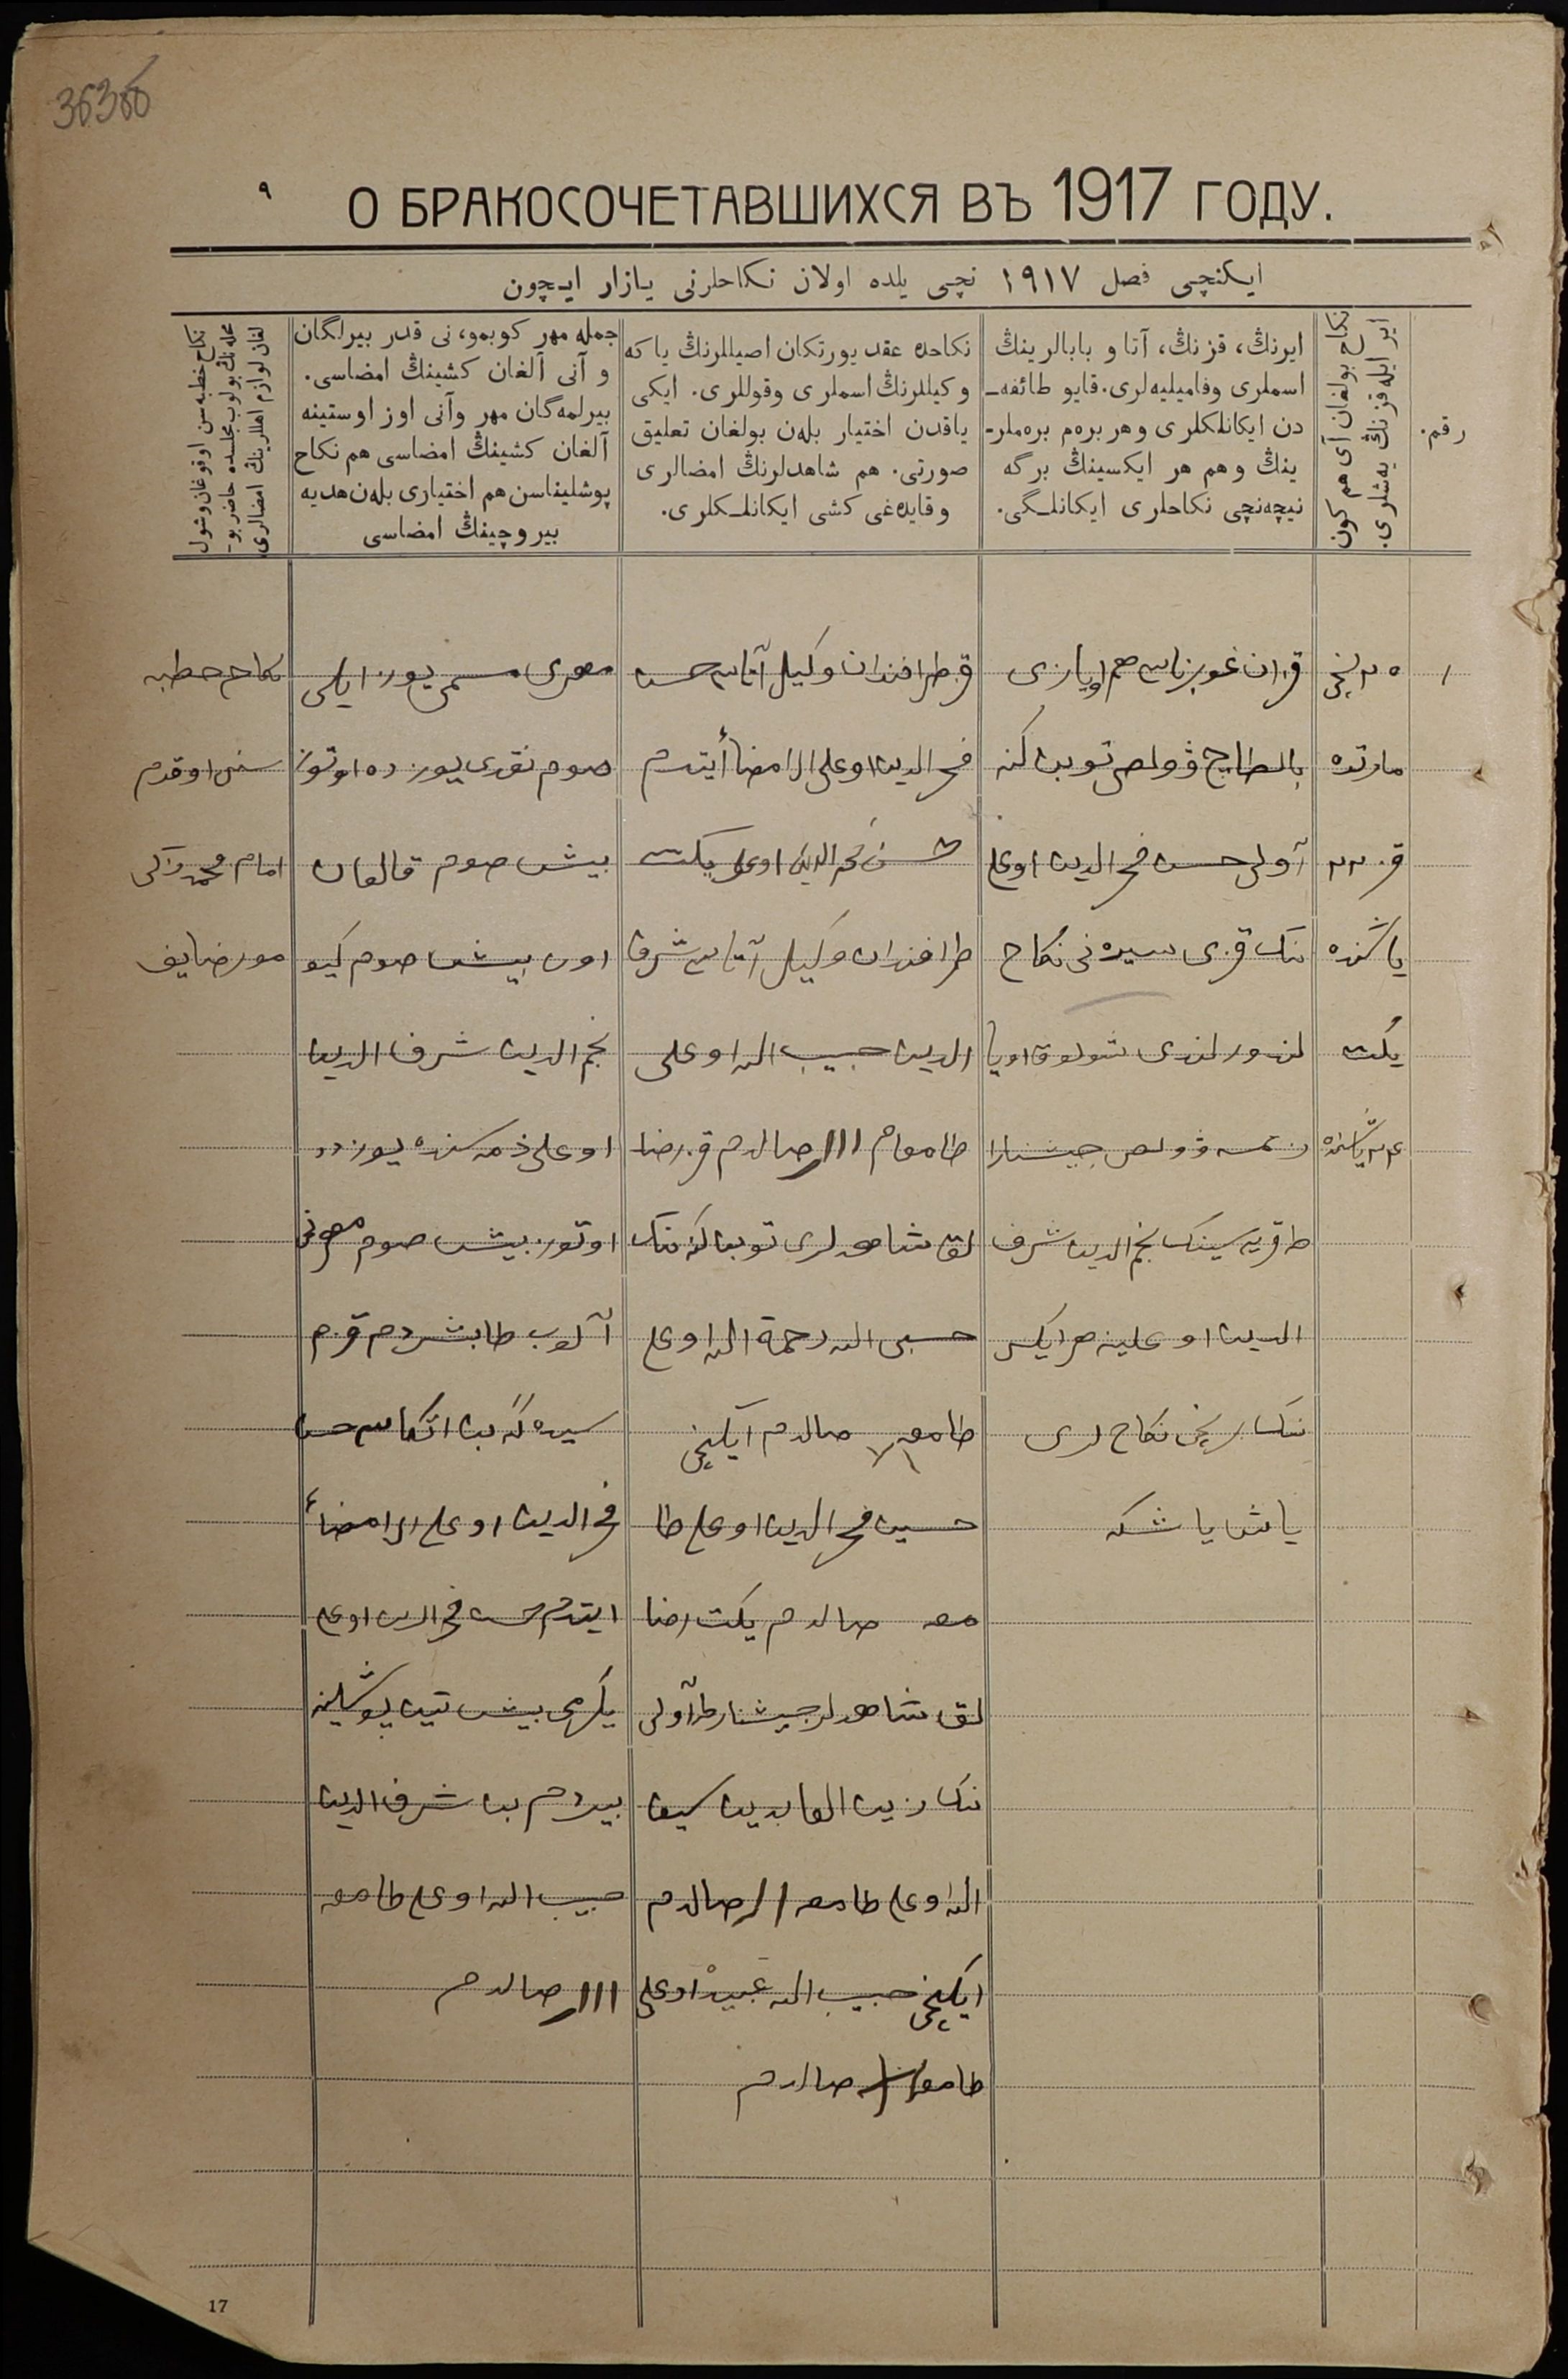 363об
٩
О БРАКОСОЧЕТАВШИХСЯ ВЪ 1917 ГОДУ.
ایكنچی فصل ١٩١٧ نچی یلده اولان نكاحلرنی یازار ایچون
رقم.
نكاح بولغان آی هم كون
ایر ایله قزنڭ یه‌شلری.
ایرنڭ، قزنڭ، آتا و بابالرینڭ
اسملری وفامیلیه‌لری. قایو طائفه‌ـ
دن ایكانلكلری وهر بره‌م بره‌ملرـ
ینڭ وهم هر ایكسینڭ برگه
نیچه‌نچی نكاحلری ایكانلـگی.
نكاحده عقد یورتكان اصیللرنڭ یاكه
وكیللرنڭ اسملری وقوللری. ایكی
یاقدن اختیار بله‌ن بولغان تعلیق
صورتی. هم شاهدلرنڭ امضالری
وقایده‌غی كشی ایكانلـكلری.
جمله مهر كوبمو، نی قدر بیرلگان
و آنی آلغان كشینڭ امضاسی.
بیرلمه‌گان مهر وآنی اوز اوستینه
آلغان كشینڭ امضاسی هم نكاح
پوشلیناسن هم اختیاری بله‌ن هدیه
بیروچینڭ امضاسی
نكاح خطبه‌سن اوقوغان وشول
محله‌نڭ بولوب مجلسده حاضر بوـ
لغان لوازم اهللرینڭ امضالری
١
٢٥ نچی
مارتده
قز ٢٢
یاشنده
یكت
٢٤ یاشنده
قزان غوبرناسی هم اویازی
بالطاچ وولصی توبن كنه
آولی حسن فخرالدین اوغلی
ننك قزی سیده نی نكاح
لندورلندی شولوق اویا
وولص چیشنارا
ط قریه سینك نجم الدین شرف
الدین اوغلینه هر ایكسی
ننك برنچی نكاح لری
یاش یاشكه
قز طرافندان وكیل آتاسی حسن
فخرالدین اوغلی امضا أیتدم
حسن فخرالدین اوغلی یكت
طرافندان وكیل آتاسی شرف
الدین حبیب الله اوغلی
طامغام ااا صالدم قز رضا
لق شاهدلری توبن كنه ننك
حسبی الله رحمة الله اوغلی
طامغه صالدم ایكنچی
حسین فخرالدین اوغلی طا
مغه صالدم یكت رضا
لق شاهدلر چیشنارط آولی
ننك زین العابدین سیف
الله اوغلی طامغه اا صالدم
ایكنچی حبیب الله عبید اوغلی
طامغه صالدم
مهری مسمی یوز ایللی
صوم نقدی یوز ده اوتوز
بیش صوم قالغان
اون بیش صوم كیو
نجم الدین شرف الدین
اوغلی ذمه سنده یوز ده
اوتوز بیش صوم مهرنی
آلوب طابشردم قزم
سیده گه بن اتكاسی حسن
فخرالدین اوغلی امضاء
ایتدم حسن فخرالدین اوغلی
یكرمی بیش تین پوشلینه
بیردم بن شرف الدین
حبیب الله اوغلی طامغه
ااا صالدم
نكاح خطبه
سنی اوقدم
امام محمد زكی
مورضایف
17